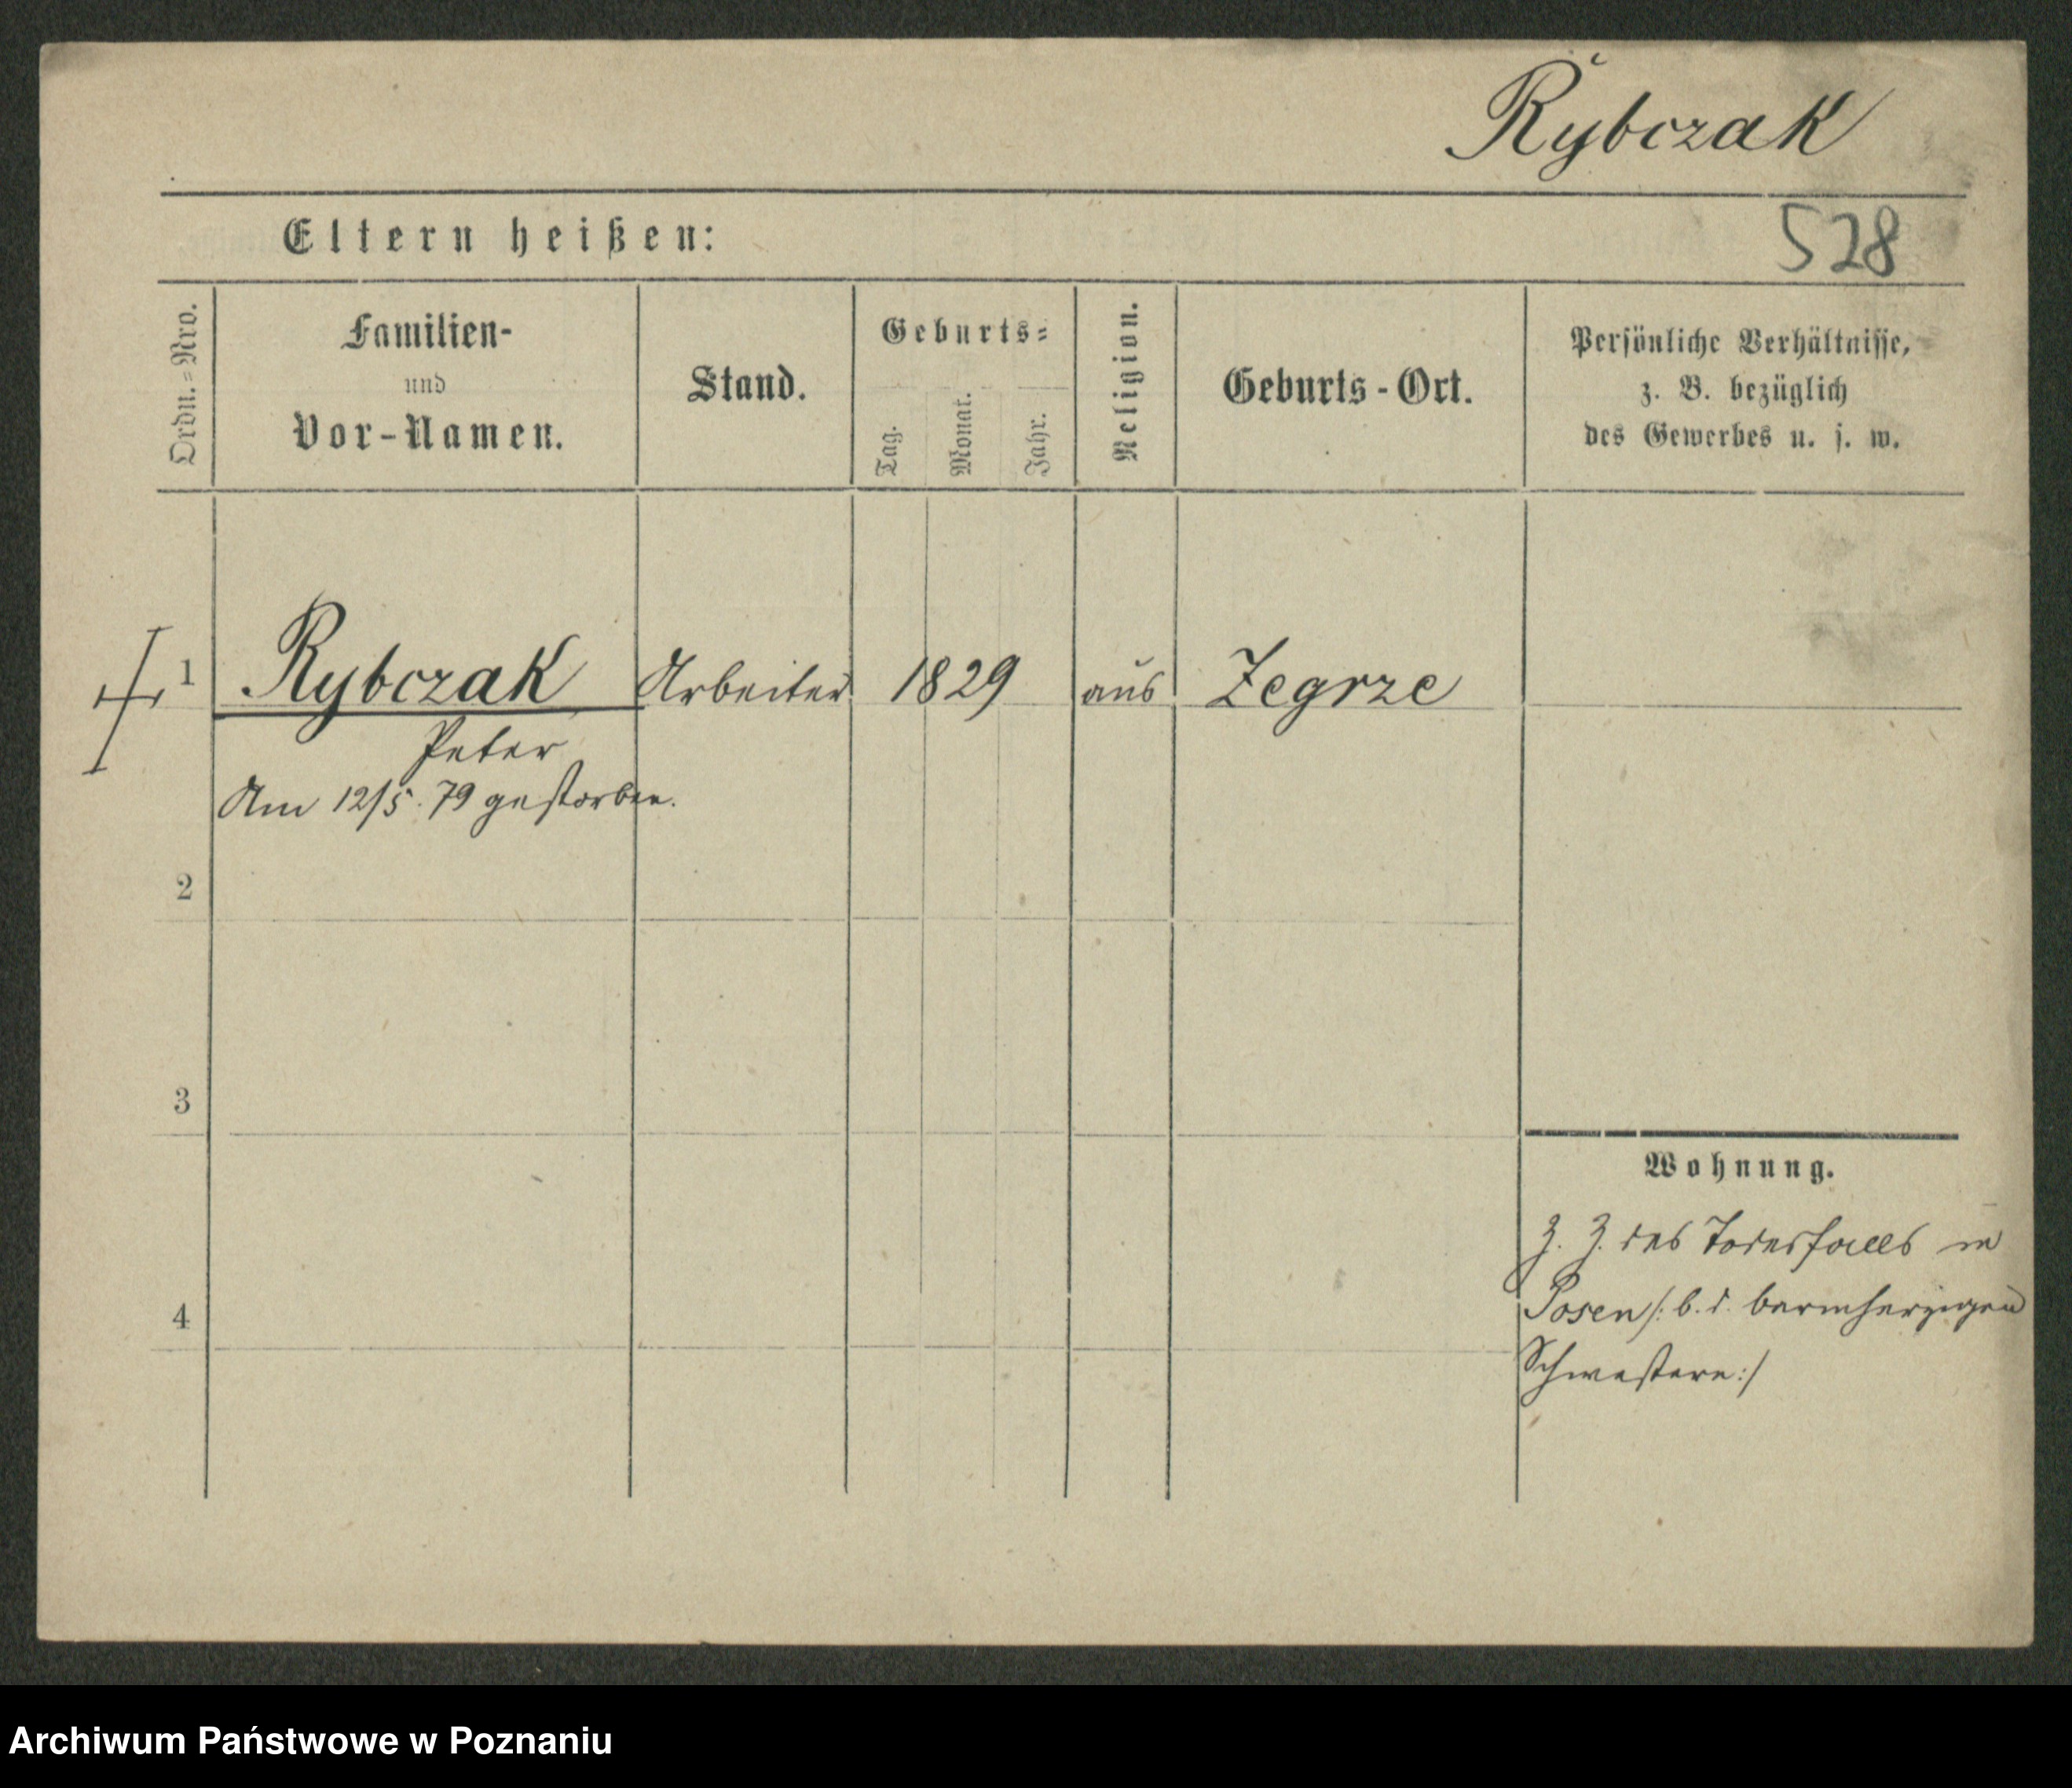 Rybczak
Eltern heißen:
528
Ordn.=Nro.
Familien-
und
Vor-Namen.
Stand.
Geburts=
Tag.
Monat.
Jahr.
Religion.
Geburts-Ort.
Persönliche Verhältnisse,
z. B. bezüglich
des Gewerbes u. s. w.
1 Rybczak Arbeiter 1829 aus Zegrze
Peter
Am 12/5. 79 gestorben.
2
3
4
Wohnung.
Z. Z. des Todesfalls in
Posen /: b. d. barmherzigen
Schwestern :/
Archiwum Państwowe w Poznaniu